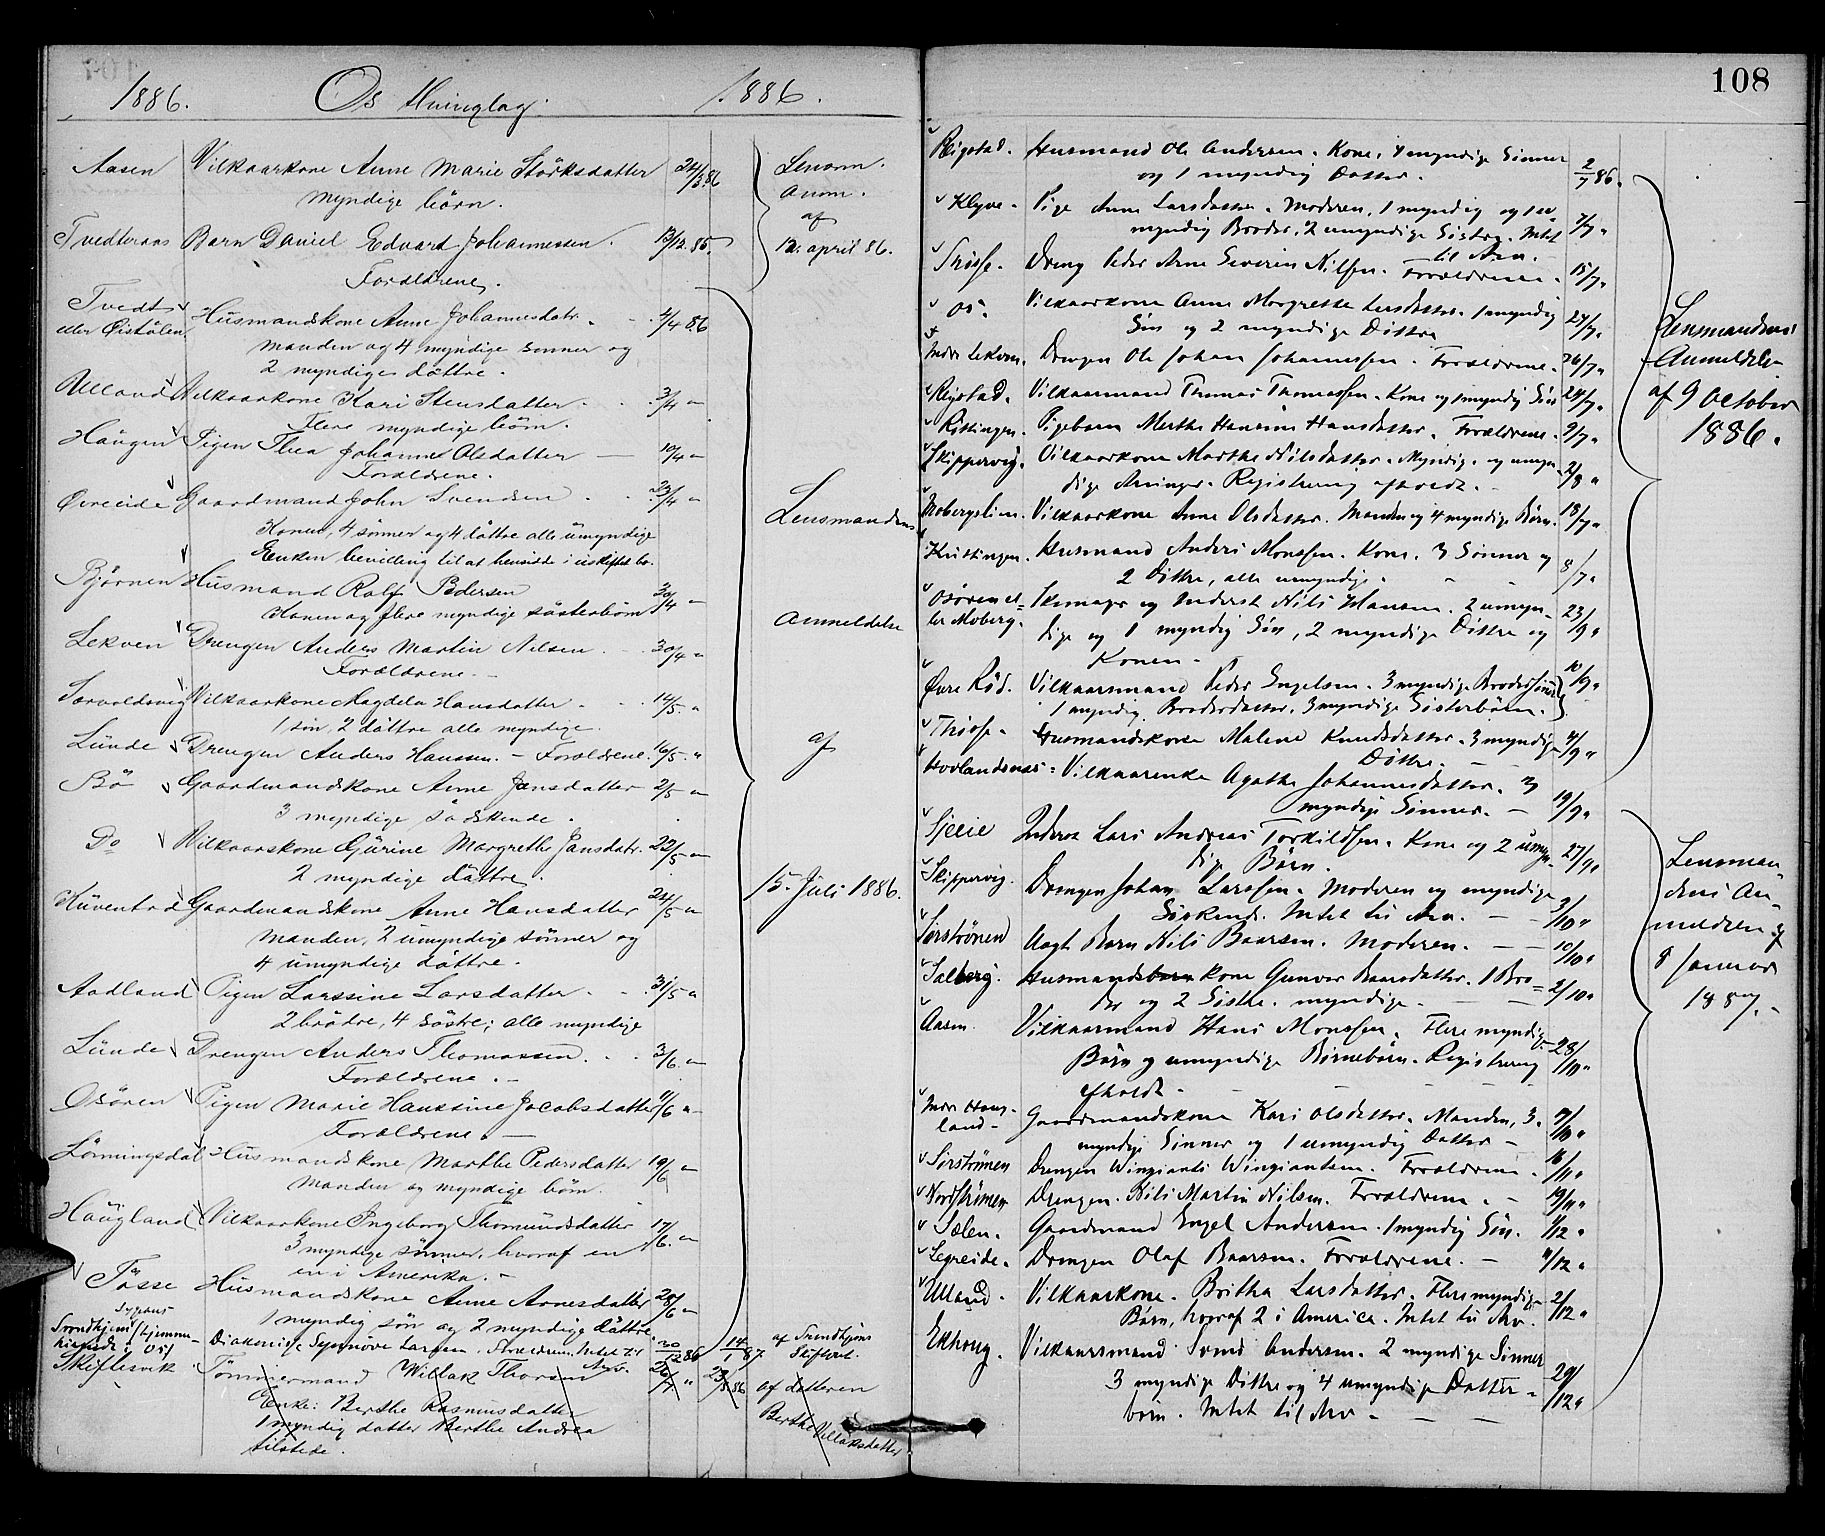 1886. Os Thinglag. 1886.
Aasen Vilkaarkone Anne Marie Störksdatter 24/3 86 Lensm.
myndige börn. Anm.
af
Tvedteraas Barn Daniel Edvard Johannessen. 13/12 85. 12 april 86.
Forældrene.
Tvedt Husmandskone Anne Johannesdatr. 4/4 86
eller Øistölen manden og 4 myndige sönner og
2 myndige döttre.
Ulland Vilkaarkone Kari Stensdatter. 3/4 "
Flere myndige börn.
Haugen Pigen Thea Johanne Olsdatter 10/4 "
Forældrene.
Øvreeide Gaardmand John Svendsen 23/4 " Lensmandens
Konen, 4 sönner og 4 döttre alle umyndige
Enken bevilling til at hensidde i uskiftet bo.
Björnen Husmand Rolf Pedersen 30/4 " Anmeldelse
Konen og flere myndige sösterbörn
Lekven Drengen Anders Martin Nilsen 30/4 "
Forældrene.
Sorvoldsvig Vilkaarkone Magdela Hansdatter 14/5 "
1 sön, 2 döttre alle myndige.
Lunde Drengen Anders Hanssen. - Forældrene. 16/5 " af
Bö Gaardmandskone Anne Jansdatter 2/5 "
3 myndige södskende.
Do Vilkaarskone Gurine Margrethe Jansdatr. 22/5 "
2 myndige döttre. 15. Juli 1886.
Gaardmandskone Anne Hansdatter 24/5 "
manden, 2 umyndige sönner og
4 umyndige döttre.
Aadland Pigen Larssine Larsdatter 31/5 "
2 brödre, 4 söstre; alle myndige
Lunde Drengen Anders Thomassen. 3/6 "
Forældrene.
Osören Pigen Marie Hanssine Jacobsdatter 4/6 "
Forældrene.
Lönningsdal Husmandskone Marthe Pedersdatter 19/6 "
manden og myndige börn.
Haugland Vilkaarkone Ingeborg Thormundsdatter 17/6 "
3 myndige sönner, hvoraf en
en i Amerika.
Tösse Husmandskone Anne Arnesdatter 28/6 "
1 myndig sön og 2 myndige döttre
Trondhjems Diakonisse Synnöve Larsen. Forældrene. Intet til Arv. 30/12 86 14/1 87. af Trondhjems
Skifteret.
Skiftesvik Tömmermand Willak Thorsen 26/7 " 23/8 86 af datteren
Enke: Berthe Rasmusdatter Berthe Villaksdatter
1 myndig datter Berthe Andrea
tilstede.
108
Reigstad. Husmand Ole Andersen. Kone, 4 myndige Sönner 2/7 86.
og 1 myndig Datter.
Klyve. Pige Anne Larsdatter. Moderen, 1 myndig og 1 u- 7/7 "
myndig Broder, 2 umyndige Söstre. Intet
til Arv.
Thösse. Dreng Peder Arne Severin Nilsen. Forældrene. 15/7 "
Os. Vilkaarkone Anne Margrethe Larsdatter. 1 myndig 24/7 " Lensmandens
Sön og 2 myndige Döttre
Indre Lekven. Drengen Ole Johan Johannessen. Forældrene. 26/7 " Anmeldelse
Reigstad. Vilkaarmand Thomas Thomassen. Kone og 1 myndig Sön 24/7 " af 9 October
Röttingen. Pigebarn Merthe Hansine Hansdatter. Forældrene. 9/7 " 1886.
Skippervig. Vilkaarkone Marthe Nilsdatter. Myndige og umyn- 2/8 "
dige Arvinger. Registrering afholdt.
Mobergslien. Vilkaarkone Anne Olsdatter. Manden og 4 myndige Börn. 18/7 "
Husmand Anders Monssen. Kone. 3 Sönner og 8/7 "
2 Döttre, alle umyndige.
Osören el- Skomager og Inderst Nils Hansen. 2 umyn- 23/9 "
ler Moberg. dige og 1 myndig Sön, 2 myndige Döttre og
Konen.
Øvre Röd. Vilkaarsmand Peder Engelsen. 3 myndige Brodersönner 10/9 "
1 myndig Broderdatter. 3 myndige Sösterbörn.
Thösse. Husmandskone Malene Knudsdatter. 3 myndige 4/9 "
Döttre.
Hovlandsnæs. Vilkaarenke Agathe Johannesdatter. 3 19/9 "
myndige Sönner.
Inderst Lars Andreas Torkildsen. Kone og 2 umyn- 27/9 " Lensman-
dige Börn.
Skippervig. Drengen Johan Larssen. Moderen og myndige 3/10 " dens An-
Söskend. Intet til Arv.
Sörströnen Uægte Barn Nils Baarsen. Moderen. 10/10 " meldelse af
Salberg. Husmandsbarn kone Gunvor Baarsdatter. 1 Bro- 2/10 " 8 Januar
der og 2 Söstre. myndige. 1887.
Aasen. Vilkaarmand Hans Monssen. Flere myndige 28/10 "
Börn og umyndige Börnebörn. Registrering
afholdt.
Indre Haug- Gaardmandskone Kari Olsdatter. Manden, 3 4/10 "
land myndige Sönner og 1 umyndig Datter
Sörströnen Drengen Wingiants Wingiantsen. Forældrene. 16/11 "
Nordströnen Drengen. Nils Martin Nilsen. Forældrene. 19/11 "
Sælen. Gaardmand Engel Andersen. 1 myndig Sön. 1/12 "
Lepseide. Drengen Olaf Baarsen. Forældrene. 11/12 "
Ulland. Vilkaarkone. Britha Larsdatter. Flere myndige 2/12 "
Börn, hvoraf 2 i America. Intet til Arv.
Ekhoug. Vilkaarsmand Svend Andersen. 2 myndige Sönner 29/12 "
3 myndige Döttre og 4 umyndige Datter-
börn. Intet til Arv.